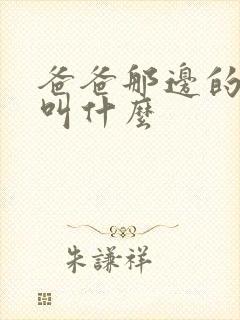 爸爸那邊的
叫什麼
朱謙祥